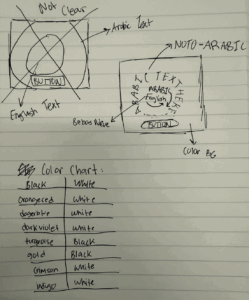 Not Clear
Arabic Text
BUTTON
English Text
NOTO-ARABIC
ARABIC TEXT HERE
ARABIC
English
Bebas Neue
BUTTON
Color BG
Color Chart:
Black White
orangered White
dodgerblue White
darkviolet White
turquoise Black
gold Black
crimson White
indigo White